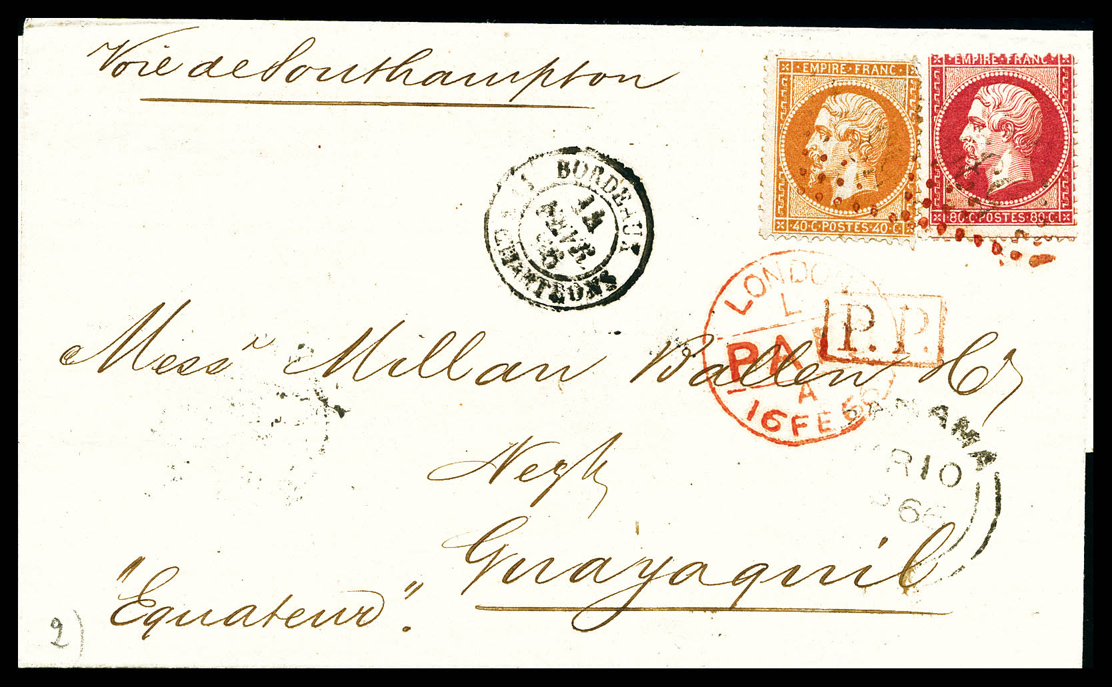 Voie de Southampton
EMPIRE · FRANC ·
40 · C · POSTES · 40 · C
EMPIRE · FRANC ·
80 · C · POSTES · 80 · C
BORDEAUX
14
FEVR.
66
CHARTRONS
LONDON
P.P.
PA
A
16 FE 66
Messrs Millan Ballen & Co
PANAMA
R 10
66
Negts
Guayaquil
"Equateur".
2)